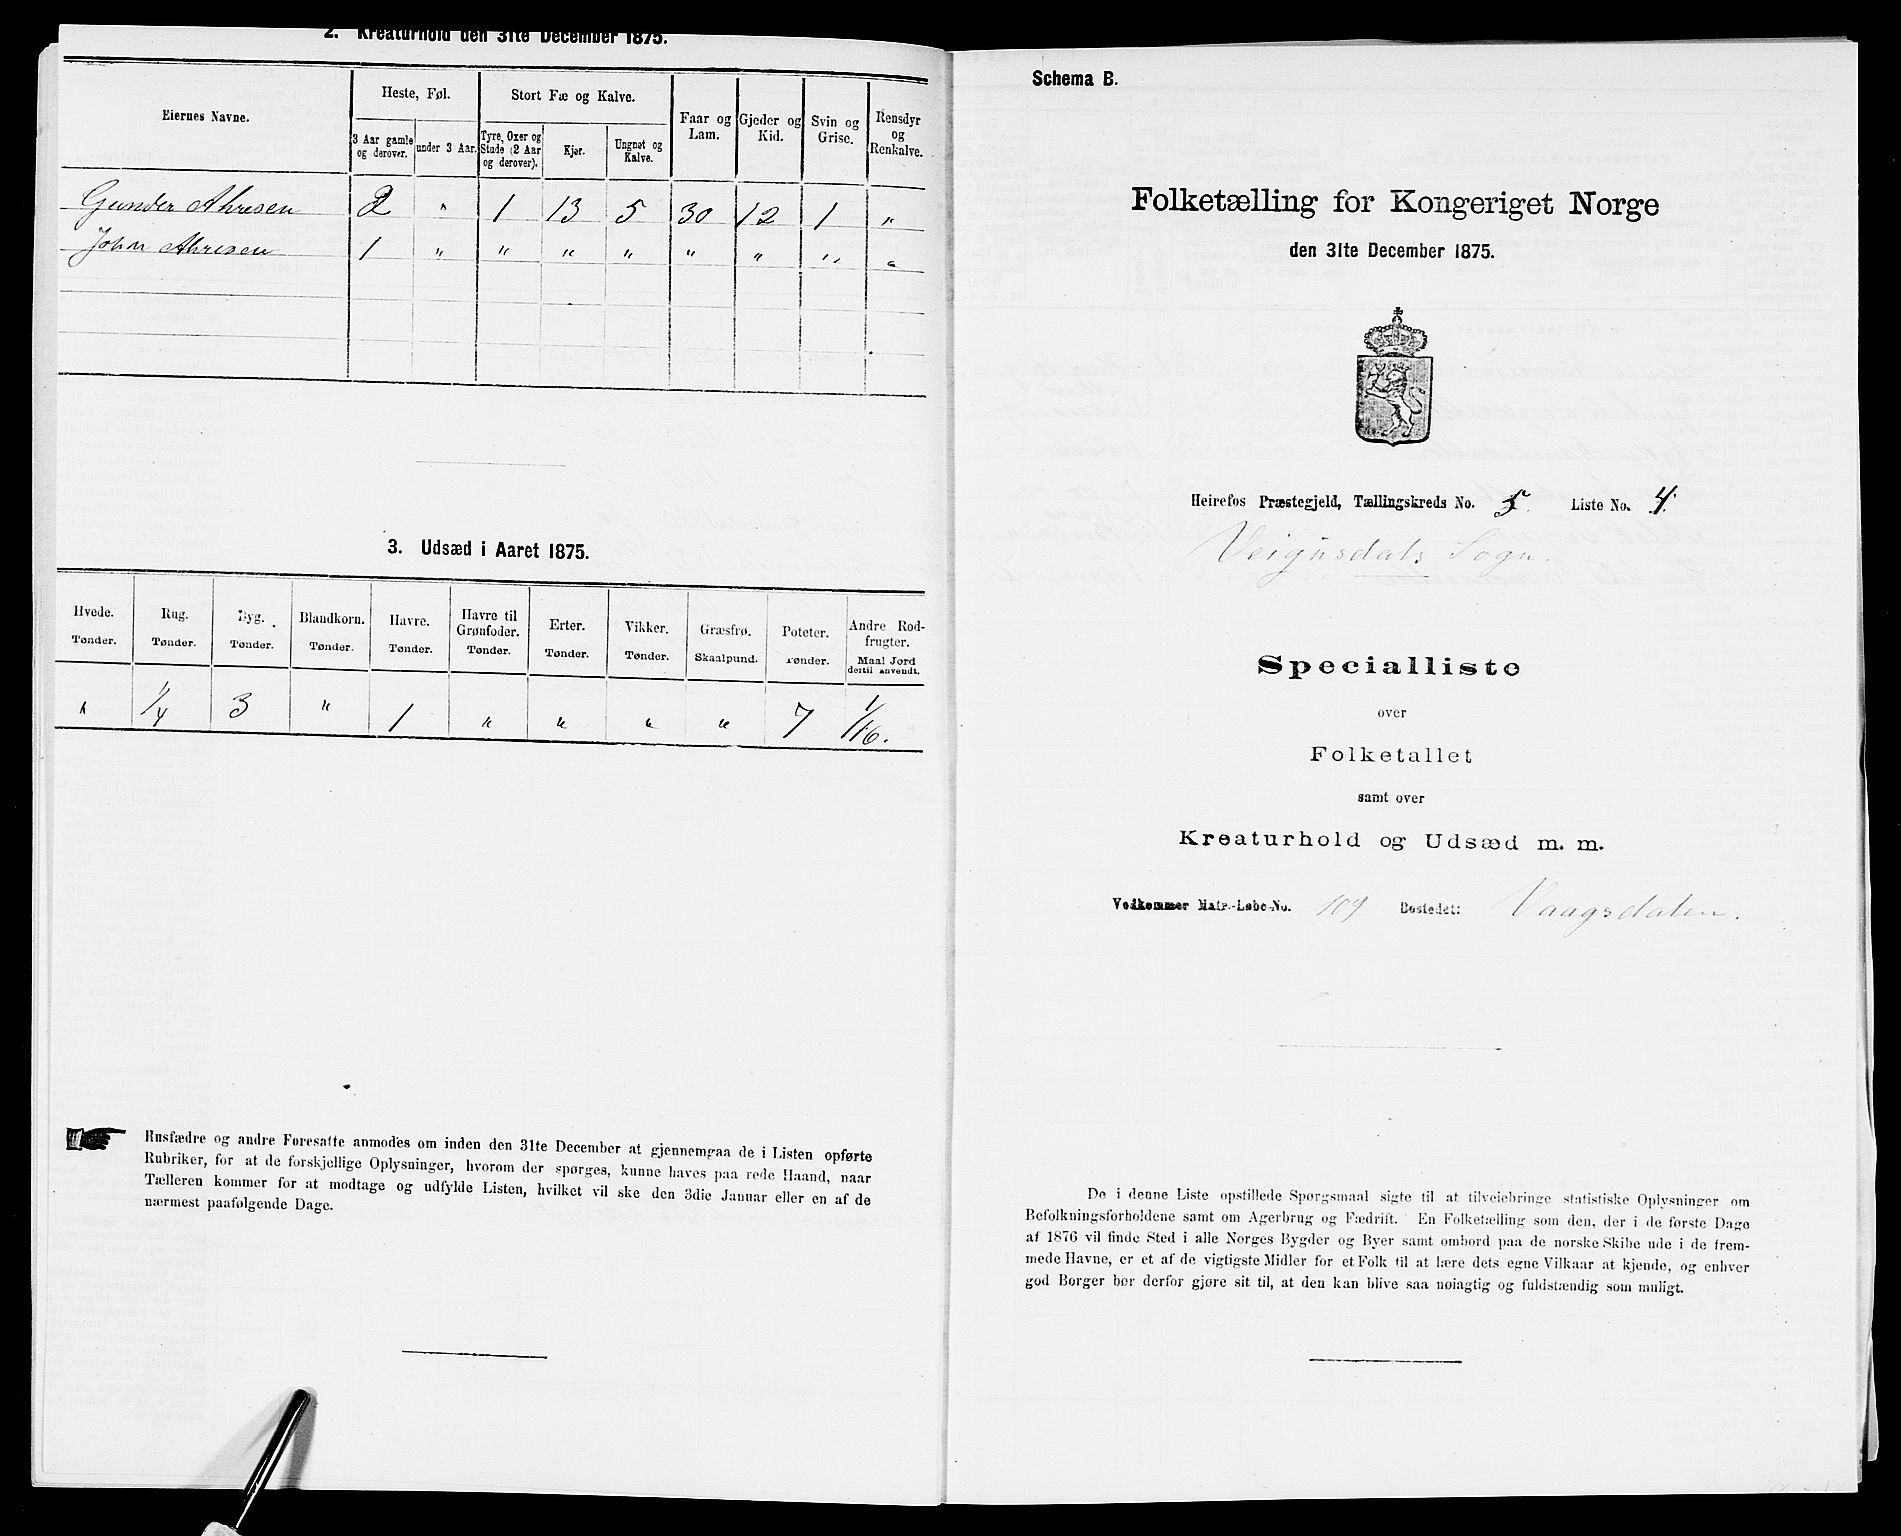 2. Kreaturhold den 31te December 1875.
Eiernes Navne.
Heste, Føl.
Stort Fæ og Kalve.
Faar og Lam.
Gjeder og Kid.
Svin og Grise.
Rensdyr og Renkalve.
3 Aar gamle og derover.
under 3 Aar.
Tyre, Oxer og Stude (2 Aar og derover).
Kjør.
Ungnøt og Kalve.
Gunder Ahresen 2 " 1 13 5 30 12 1 "
John Ahresen 1 " " " " " " " "
3. Udsæd i Aaret 1875.
Hvede. Rug. Byg. Blandkorn. Havre. Havre til Grønfoder. Erter. Vikker. Græsfrø. Poteter. Andre Rodfrugter.
Tønder. Tønder. Tønder. Tønder. Tønder. Tønder. Tønder. Tønder. Skaalpund. Tønder. Maal Jord dertil anvendt.
" 1/4 3 " 1 " " " " 7 1/16.
Husfædre og andre Foresatte anmodes om inden den 31te December at gjennemgaa de i Listen opførte
Rubriker, for at de forskjellige Oplysninger, hvorom der spørges, kunne haves paa rede Haand, naar
Tælleren kommer for at modtage og udfylde Listen, hvilket vil ske den 3die Januar eller en af de
nærmest paafølgende Dage.
Schema B.
Folketælling for Kongeriget Norge
den 31te December 1875.
Heirefos Præstegjeld, Tællingskreds No. 5. Liste No. 4.
Veigusdals Sogn.
Specialliste
over
Folketallet
samt over
Kreaturhold og Udsæd m. m.
Vedkommer Matr.-Løbe-No. 109 Bostedet: Vaagsdalen.
De i denne Liste opstillede Spørgsmaal sigte til at tilveiebringe statistiske Oplysninger om
Befolkningsforholdene samt om Agerbrug og Fædrift. En Folketælling som den, der i de første Dage
af 1876 vil finde Sted i alle Norges Bygder og Byer samt ombord paa de norske Skibe ude i de frem-
mede Havne, er et af de vigtigste Midler for et Folk til at lære dets egne Vilkaar at kjende, og enhver
god Borger bør derfor gjøre sit til, at den kan blive saa nøiagtig og fuldstændig som muligt.